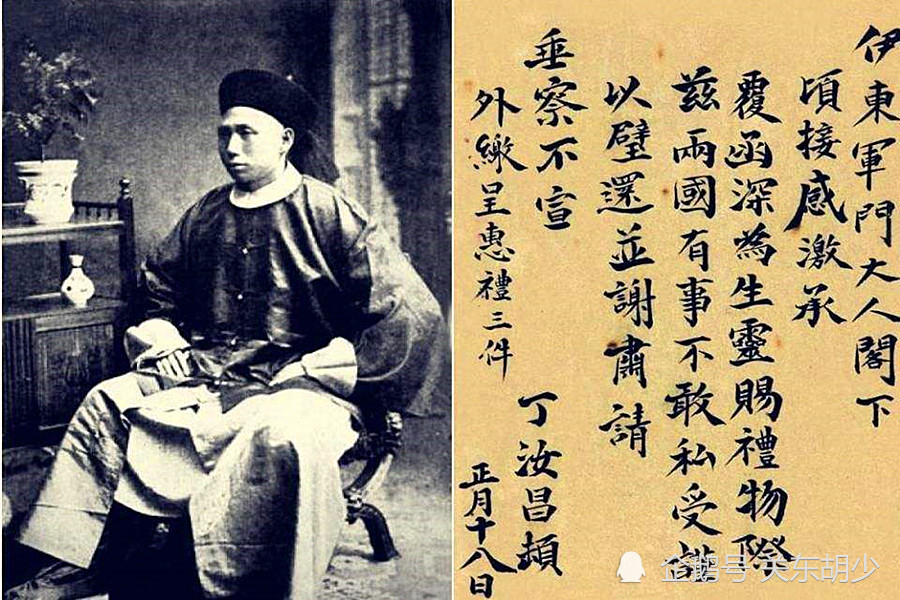 伊東軍門大人閣下
頃接感激承
覆函深為生靈賜禮物際
茲兩國有事不敢私受謹
以璧還並謝肅請
垂察不宣
丁汝昌頓
外繳呈惠禮三件
正月十八日
企鹅号 关东胡少